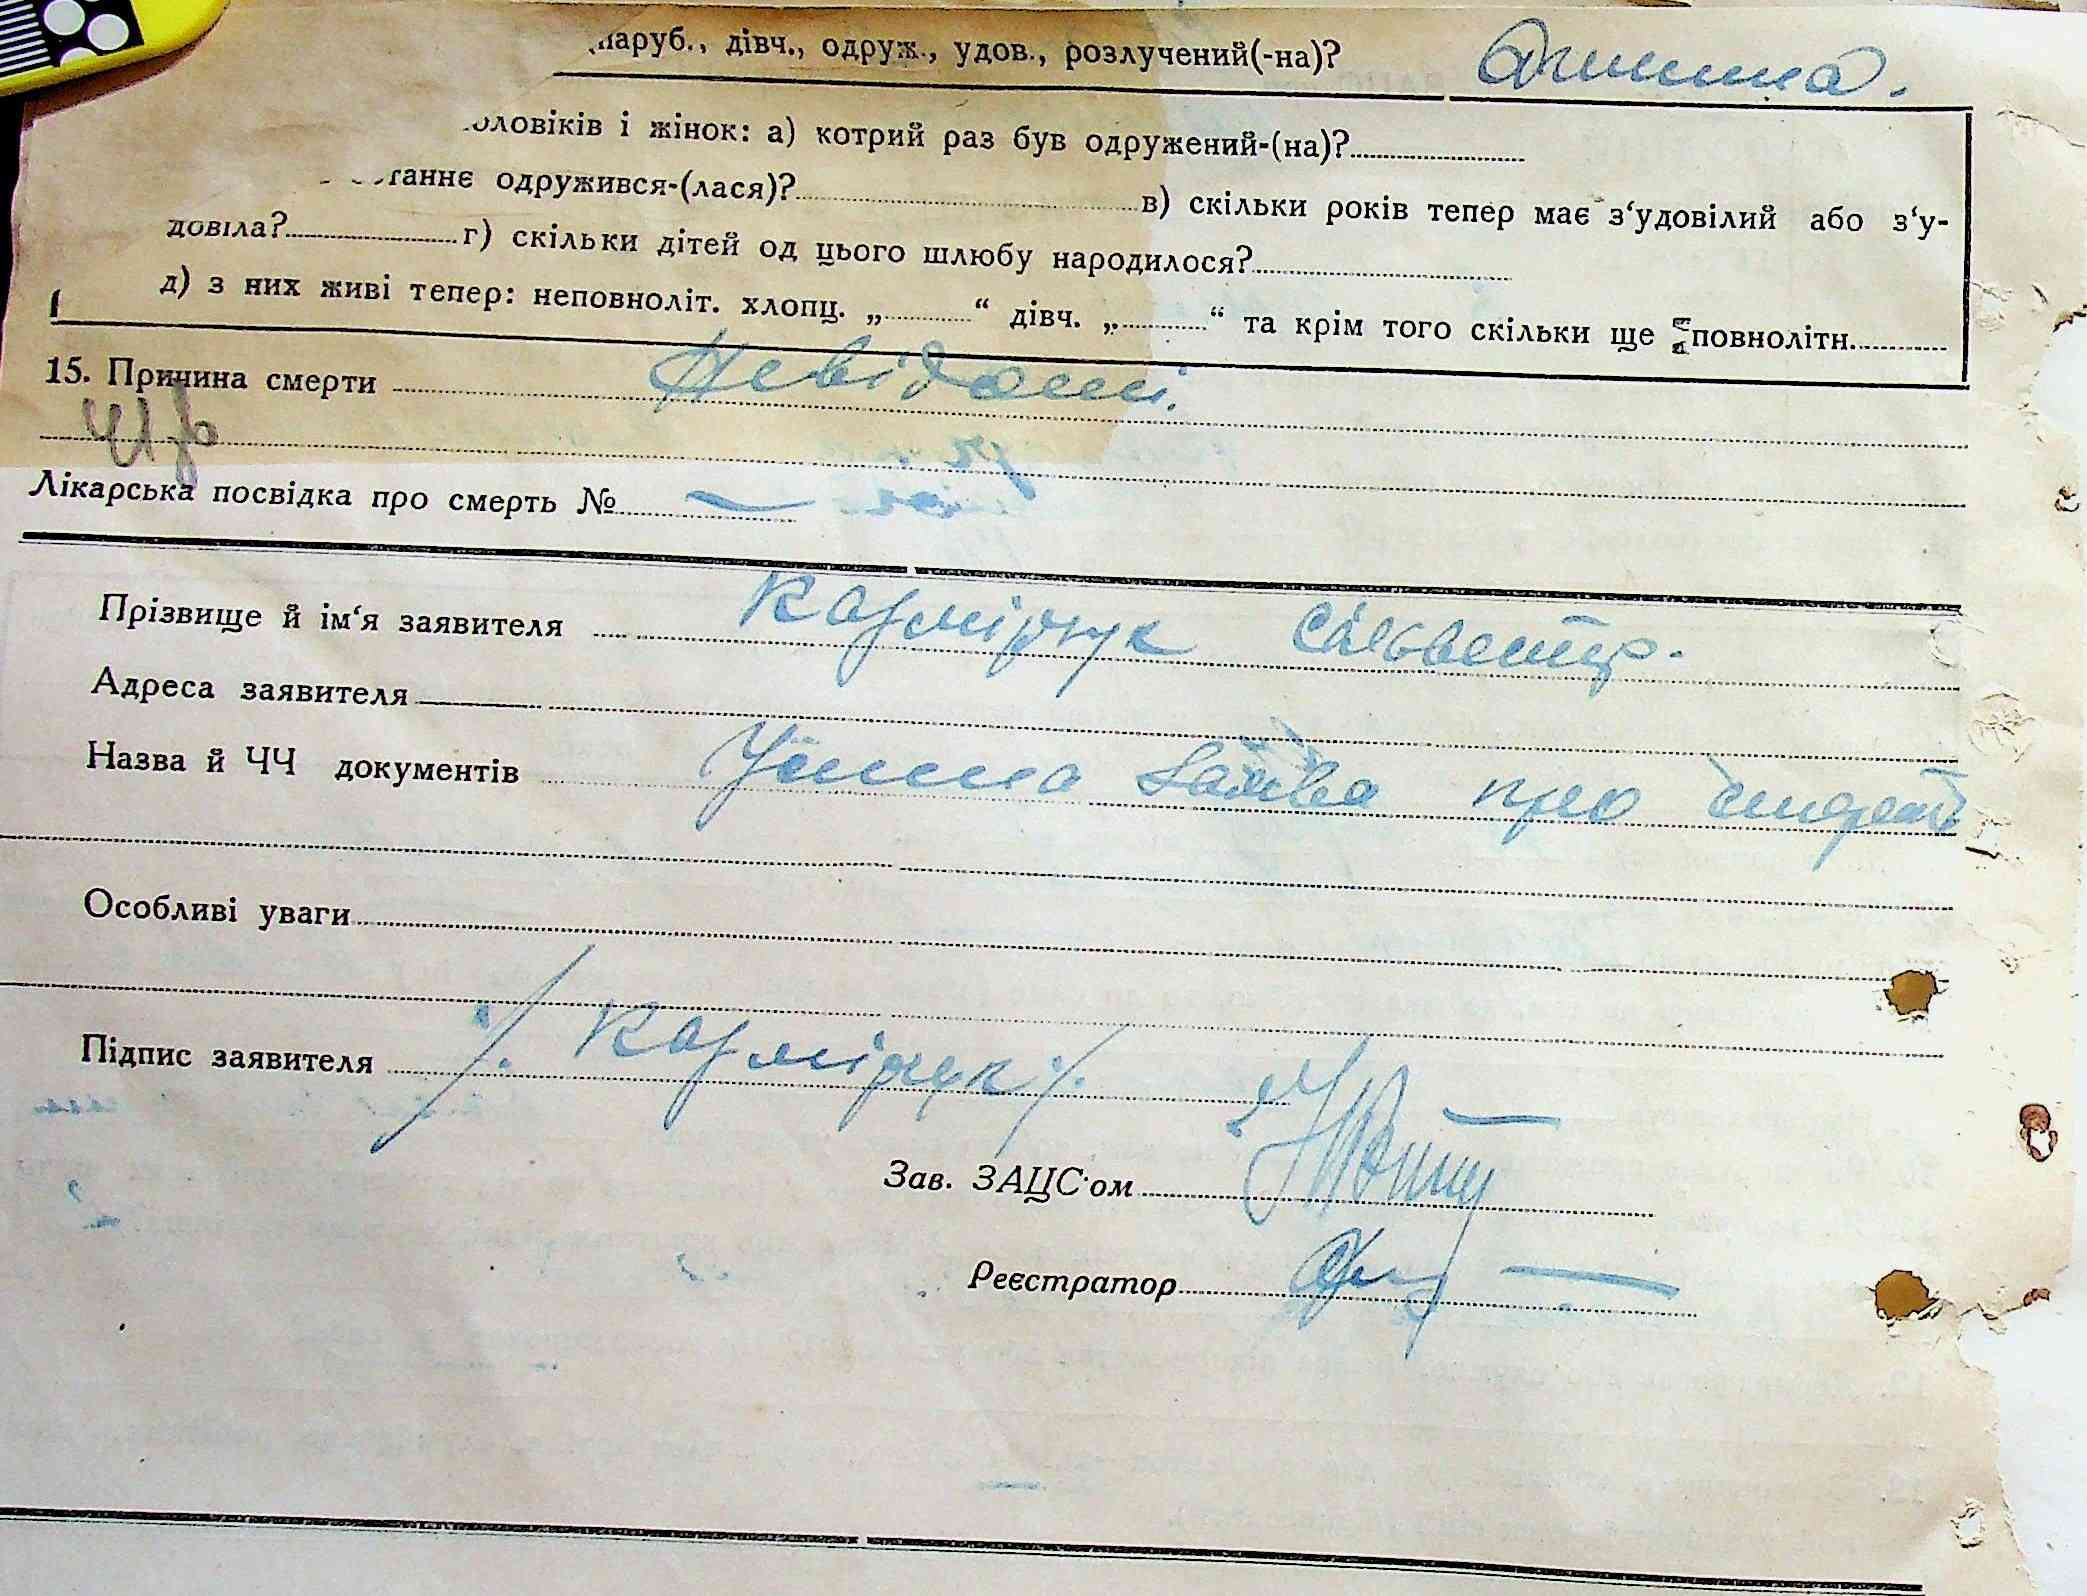 паруб., дівч., одруж., удов., розлучений(-на)? Дитина.
оловіків і жінок: а) котрий раз був одружений-(на)?
таннє одружився-(лася)? в) скільки років тепер має з‘удовілий або з‘у-
довіла? г) скільки дітей од цього шлюбу народилося?
д) з них живі тепер: неповноліт. хлопц. „ “ дівч. „ “ та крім того скільки ще повнолітн.
15. Причина смерти Невідомі.
Лікарська посвідка про смерть №
Прізвище й ім‘я заявителя Кармічук Сільвестр.
Адреса заявителя
Назва й ЧЧ документів Усна заява про смерть
Особливі уваги
Підпис заявителя /. Кармічук ./.
Зав. ЗАЦС‘ом
Реєстратор